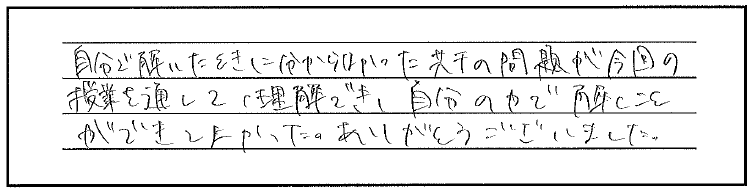 自分で解いたときに分からなかった苦手の問題が今回の
授業を通して理解でき、自分の力で解くこと
ができてよかった。ありがとうございました。